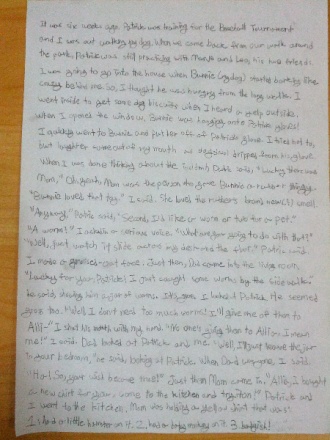 It was six weeks ago. Patrick was training for the Baseball Tournament
and I was out walking my dog. When we came back from our walk around
the park, Patrick was still practicing with Mark and Leo, his two friends.
I was going to go into the house when Bunnie (my dog) started barking like
crazy behind me. So, I thought he was hungry from the long walk. I
went inside to get some dog biscuits when I heard a yelp outside.
When I opened the window, Bunnie was hanging onto Patrick's glove!
I quickly went to Bunnie and put her off of Patrick's glove. I tried not to,
but laughter came out of my mouth as dripped from his glove.
When I was done thinking about the Dad said, "Lucky there was
Mom." Oh, yeah, Mom was the person who gave Bunnie a
"Bunnie loved that toy." I said. She loves the brand new smell.
"Anyway," Patrick said, "Second, I'd like a worm or two for a pet."
"A worm!" I said in a serious voice. "What are you going to do with that?"
"Well, just watch it slide across my desk and the floor." Patrick said.
I made a face. Just then, Dad came into the living room,
"Lucky for you, Patrick! I just caught some worms by the sidewalk."
he said, showing him a jar of worms. I looked at Patrick. He seemed
too. "Well I don't need too much worms! I'll give one of them to
Alli-" I shut his mouth with my hand. "No one's giving them to Alli, I mean
me!" I said. Dad looked at Patrick and me. "Well, I'll just leave the jar
in your bedroom," he said, looking at Patrick. When Dad was gone, I said
"Ha! So, your wish became true!" Just then Mom came in. "Alli, I bought
a new shirt for you, come to the kitchen and try it on!" Patrick and
I went to the kitchen. Mom was holding a yellow shirt that was
I had a little hunter on it. I had a baby monkey on it 3 bananas!